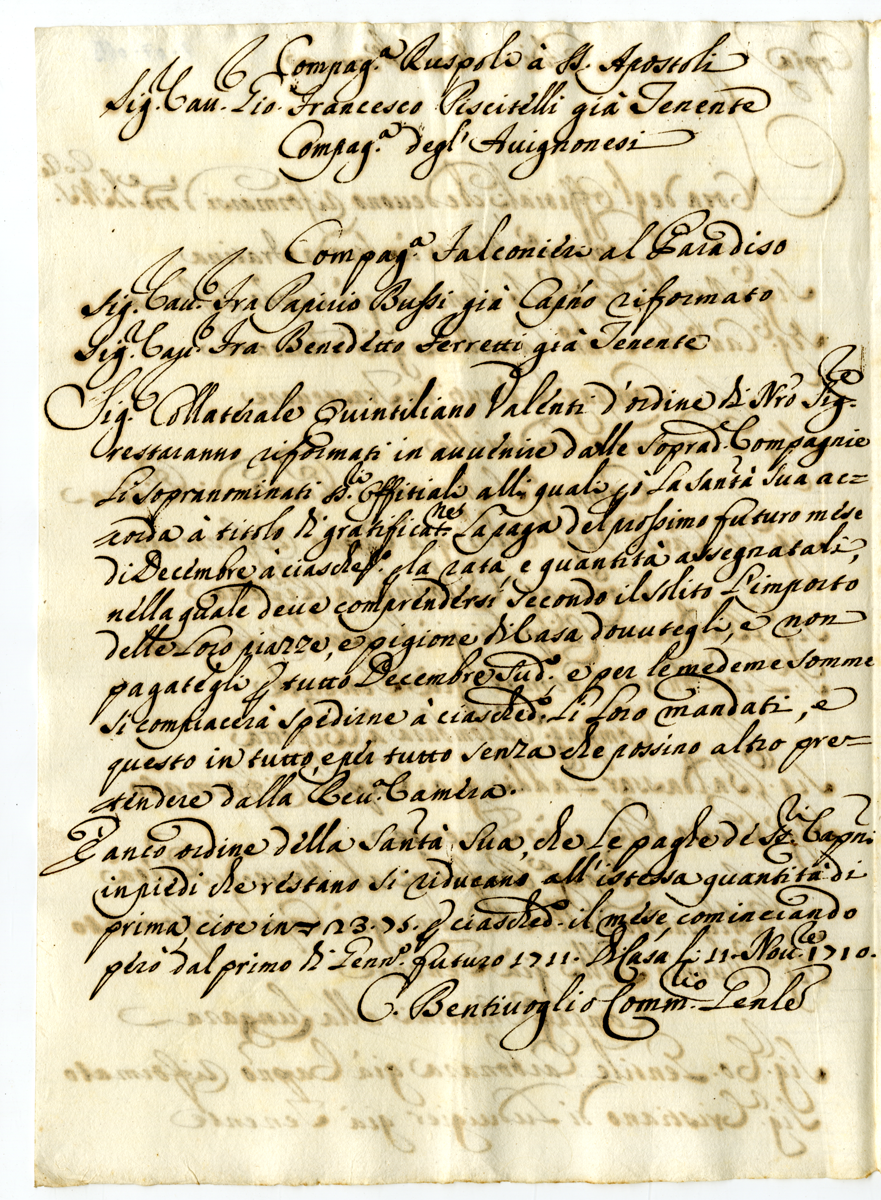 Compag.ª Ruspoli à SS. Apostoli
Sig.r Cau.r Gio. Francesco Piscitelli già Tenente
Compag.ª degl' Auignonesi
Compag.ª Falconieri al Paradiso
Sig.r Cau.r Fra Papirio Bussi già Capño riformato
Sig.r Cau.r Fra Benedetto Ferretti già Tenente
Sig.r Collaterale Quintiliano Valenti d'ordine di Nrõ Sig.re
restaranno riformati in auuenire dalle soprad.e Compagnie
li sopranominati SS.ri Offitiali alli quali però la Santà Sua ac=
corda à titolo di gratificat.nes la paga del prossimo futuro mese
di Decembre à ciasched.º p la rata e quantità assegnatali,
nella quale deue comprendersi secondo il solito l'importo
delle loro piazze, e pigione di Casa douutegli, e non
pagategli p tutto Decembre sud.º e per le medeme somme
si compiacerà spedirne à ciasched.º li loro mandati, e
questo in tutto, e per tutto senza che possino altro pre=
tendere dalla Reu.ª Camera.
È anco ordine della Santà Sua, che le paghe de SS.ri Capñi
in piedi che restano si riducano all'istessa quantità di
prima, cioe in 23.75. p ciasched.º il mese, cominciando
però dal primo di Genn.º futuro 1711. Di Casa li 11. Nou.re 1710.
C. Bentiuoglio Comm.rio Genle